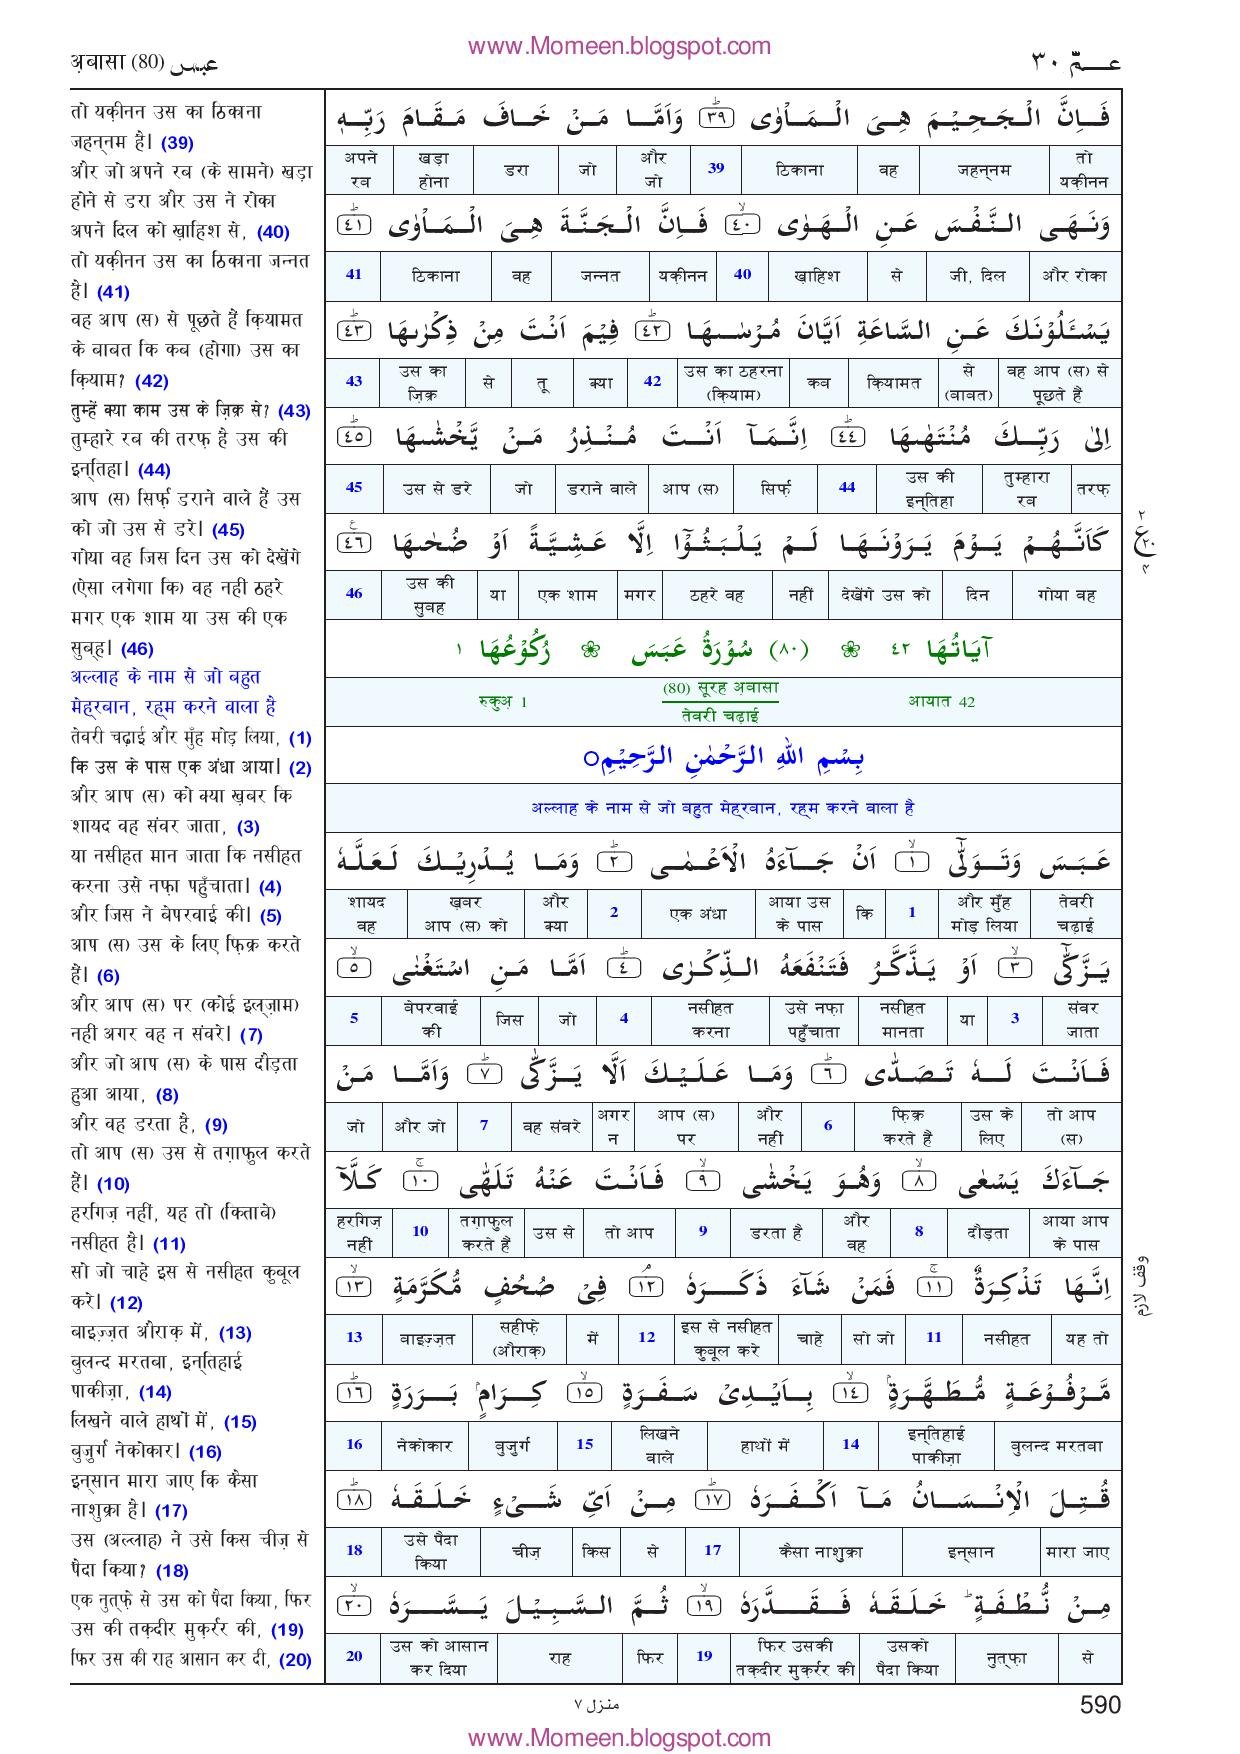 www.Momeen.blogspot.com
अ़बासा (80) عبس
عـــمّ ٣٠
तो यक़ीनन उस का ठिकाना
जहन्नम है। (39)
और जो अपने रब (के सामने) खड़ा
होने से डरा और उस ने रोका
अपने दिल को ख़ाहिश से, (40)
तो यक़ीनन उस का ठिकाना जन्नत
है। (41)
वह आप (स) से पूछते हैं क़ियामत
के बाबत कि कब (होगा) उस का
क़ियाम? (42)
तुम्हें क्या काम उस के ज़िक्र से? (43)
तुम्हारे रब की तरफ़ है उस की
इन्तिहा। (44)
आप (स) सिर्फ़ डराने वाले हैं उस
को जो उस से डरे। (45)
गोया वह जिस दिन उस को देखेंगे
(ऐसा लगेगा कि) वह नहीं ठहरे
मगर एक शाम या उस की एक
सुबह। (46)
अल्लाह के नाम से जो बहुत
मेह्रबान, रह्म करने वाला है
तेवरी चढ़ाई और मुँह मोड़ लिया, (1)
कि उस के पास एक अंधा आया। (2)
और आप (स) को क्या ख़बर कि
शायद वह संवर जाता, (3)
या नसीहत मान जाता कि नसीहत
करना उसे नफ़ा पहुँचाता। (4)
और जिस ने बेपरवाई की। (5)
आप (स) उस के लिए फ़िक्र करते
हैं। (6)
और आप (स) पर (कोई इल्ज़ाम)
नहीं अगर वह न संवरे। (7)
और जो आप (स) के पास दौड़ता
हुआ आया, (8)
और वह डरता है, (9)
तो आप (स) उस से तग़ाफ़ुल करते
हैं। (10)
हरगिज़ नहीं, यह तो (किताबे)
नसीहत है। (11)
सो जो चाहे इस से नसीहत क़ुबूल
करे। (12)
बाइज़्ज़त औराक़ में, (13)
बुलन्द मरतबा, इन्तिहाई
पाकीज़ा, (14)
लिखने वाले हाथों में, (15)
बुज़ुर्ग नेकोकार। (16)
इन्सान मारा जाए कि कैसा
नाशुक्रा है। (17)
उस (अल्लाह) ने उसे किस चीज़ से
पैदा किया? (18)
एक नुत्फ़े से उस को पैदा किया, फिर
उस की तक़्दीर मुक़र्रर की, (19)
फिर उस की राह आसान कर दी, (20)
فَاِنَّ الْجَحِيْمَ هِيَ الْمَاْوٰى ٣٩ وَاَمَّا مَنْ خَافَ مَقَامَ رَبِّهٖ
तो यक़ीनन जहन्नम वह ठिकाना 39 और जो जो डरा खड़ा होना अपने रब
وَنَهَى النَّفْسَ عَنِ الْهَوٰى ٤٠ فَاِنَّ الْجَنَّةَ هِيَ الْمَاْوٰى ٤١
और रोका जी, दिल से ख़ाहिश 40 यक़ीनन जन्नत वह ठिकाना 41
يَسْـَٔلُوْنَكَ عَنِ السَّاعَةِ اَيَّانَ مُرْسٰىهَا ٤٢ فِيْمَ اَنْتَ مِنْ ذِكْرٰىهَا ٤٣
वह आप (स) से पूछते हैं से (बाबत) क़ियामत कब उस का ठहरना (क़ियाम) 42 क्या तू से उस का ज़िक्र 43
اِلٰى رَبِّكَ مُنْتَهٰىهَا ٤٤ اِنَّمَآ اَنْتَ مُنْذِرُ مَنْ يَّخْشٰىهَا ٤٥
तरफ़ तुम्हारा रब उस की इन्तिहा 44 सिर्फ़ आप (स) डराने वाले जो उस से डरे 45
كَاَنَّهُمْ يَوْمَ يَرَوْنَهَا لَمْ يَلْبَثُوْٓا اِلَّا عَشِيَّةً اَوْ ضُحٰىهَا ٤٦
गोया वह दिन देखेंगे उस को नहीं ठहरे वह मगर एक शाम या उस की सुबह 46
اٰيَاتُهَا ٤٢ ❀ (٨٠) سُوْرَةُ عَبَسَ ❀ رُكُوْعُهَا ١
आयात 42 (80) सूरह अ़बासा तेवरी चढ़ाई रुकुअ़ 1
بِسْمِ اللهِ الرَّحْمٰنِ الرَّحِيْمِ
अल्लाह के नाम से जो बहुत मेह्रबान, रह्म करने वाला है
عَبَسَ وَتَوَلّٰىٓ ١ اَنْ جَآءَهُ الْاَعْمٰى ٢ وَمَا يُدْرِيْكَ لَعَلَّهٗ
तेवरी चढ़ाई और मुँह मोड़ लिया 1 कि आया उस के पास एक अंधा 2 और क्या ख़बर आप (स) को शायद वह
يَزَّكّٰىٓ ٣ اَوْ يَذَّكَّرُ فَتَنْفَعَهُ الذِّكْرٰى ٤ اَمَّا مَنِ اسْتَغْنٰى ٥
संवर जाता 3 या नसीहत मानता उसे नफ़ा पहुँचाता नसीहत करना 4 जो जिस बेपरवाई की 5
فَاَنْتَ لَهٗ تَصَدّٰى ٦ وَمَا عَلَيْكَ اَلَّا يَزَّكّٰى ٧ وَاَمَّا مَنْ
तो आप (स) उस के लिए फ़िक्र करते हैं 6 और नहीं आप (स) पर अगर न वह संवरे 7 और जो जो
جَآءَكَ يَسْعٰى ٨ وَهُوَ يَخْشٰى ٩ فَاَنْتَ عَنْهُ تَلَهّٰى ١٠ كَلَّآ
आया आप के पास दौड़ता 8 और वह डरता है 9 तो आप उस से तग़ाफ़ुल करते हैं 10 हरगिज़ नहीं
اِنَّهَا تَذْكِرَةٌ ١١ فَمَنْ شَآءَ ذَكَرَهٗ ١٢ فِيْ صُحُفٍ مُّكَرَّمَةٍ ١٣
यह तो नसीहत 11 सो जो चाहे इस से नसीहत क़ुबूल करे 12 में सहीफ़े (औराक़) बाइज़्ज़त 13
مَّرْفُوْعَةٍ مُّطَهَّرَةٍ ١٤ بِاَيْدِيْ سَفَرَةٍ ١٥ كِرَامٍ بَرَرَةٍ ١٦
बुलन्द मरतबा इन्तिहाई पाकीज़ा 14 हाथों में लिखने वाले 15 बुज़ुर्ग नेकोकार 16
قُتِلَ الْاِنْسَانُ مَآ اَكْفَرَهٗ ١٧ مِنْ اَيِّ شَيْءٍ خَلَقَهٗ ١٨
मारा जाए इन्सान कैसा नाशुक्रा 17 से किस चीज़ उसे पैदा किया 18
مِنْ نُّطْفَةٍ خَلَقَهٗ فَقَدَّرَهٗ ١٩ ثُمَّ السَّبِيْلَ يَسَّرَهٗ ٢٠
से नुत्फ़ा उसको पैदा किया फिर उसकी तक़्दीर मुक़र्रर की 19 फिर राह उस को आसान कर दिया 20
٢
ع ٢٠
وقف لازم
منزل ٧
590
www.Momeen.blogspot.com